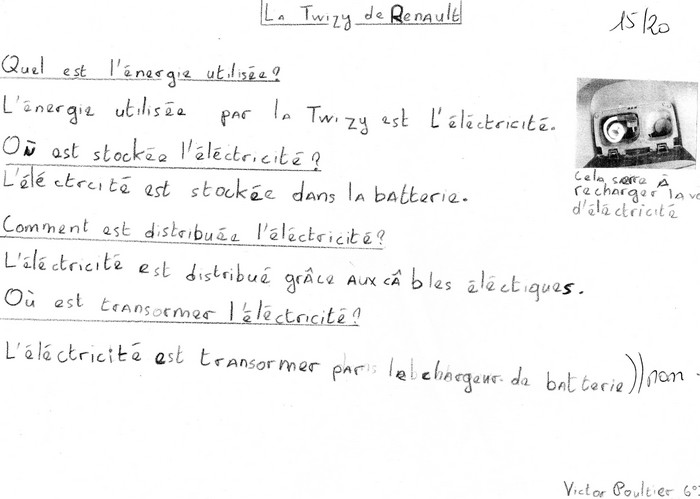 La Twizy de Renault
15/20
Quel est l'énergie utilisée?
L'énergie utilisée par la Twizy est L'éléctricité.
Où est stockée l'éléctricité?
L'éléctrcité est stockée dans la batterie.
Cela serre à
recharger la vo
d'éléctricité
Comment est distribuée l'éléctricité?
L'éléctricité est distribué grâce aux câbles éléctiques.
Où est transormer l'éléctricité?
L'éléctricité est transormer par le chargeur de batterie)) non
Victor Poultier